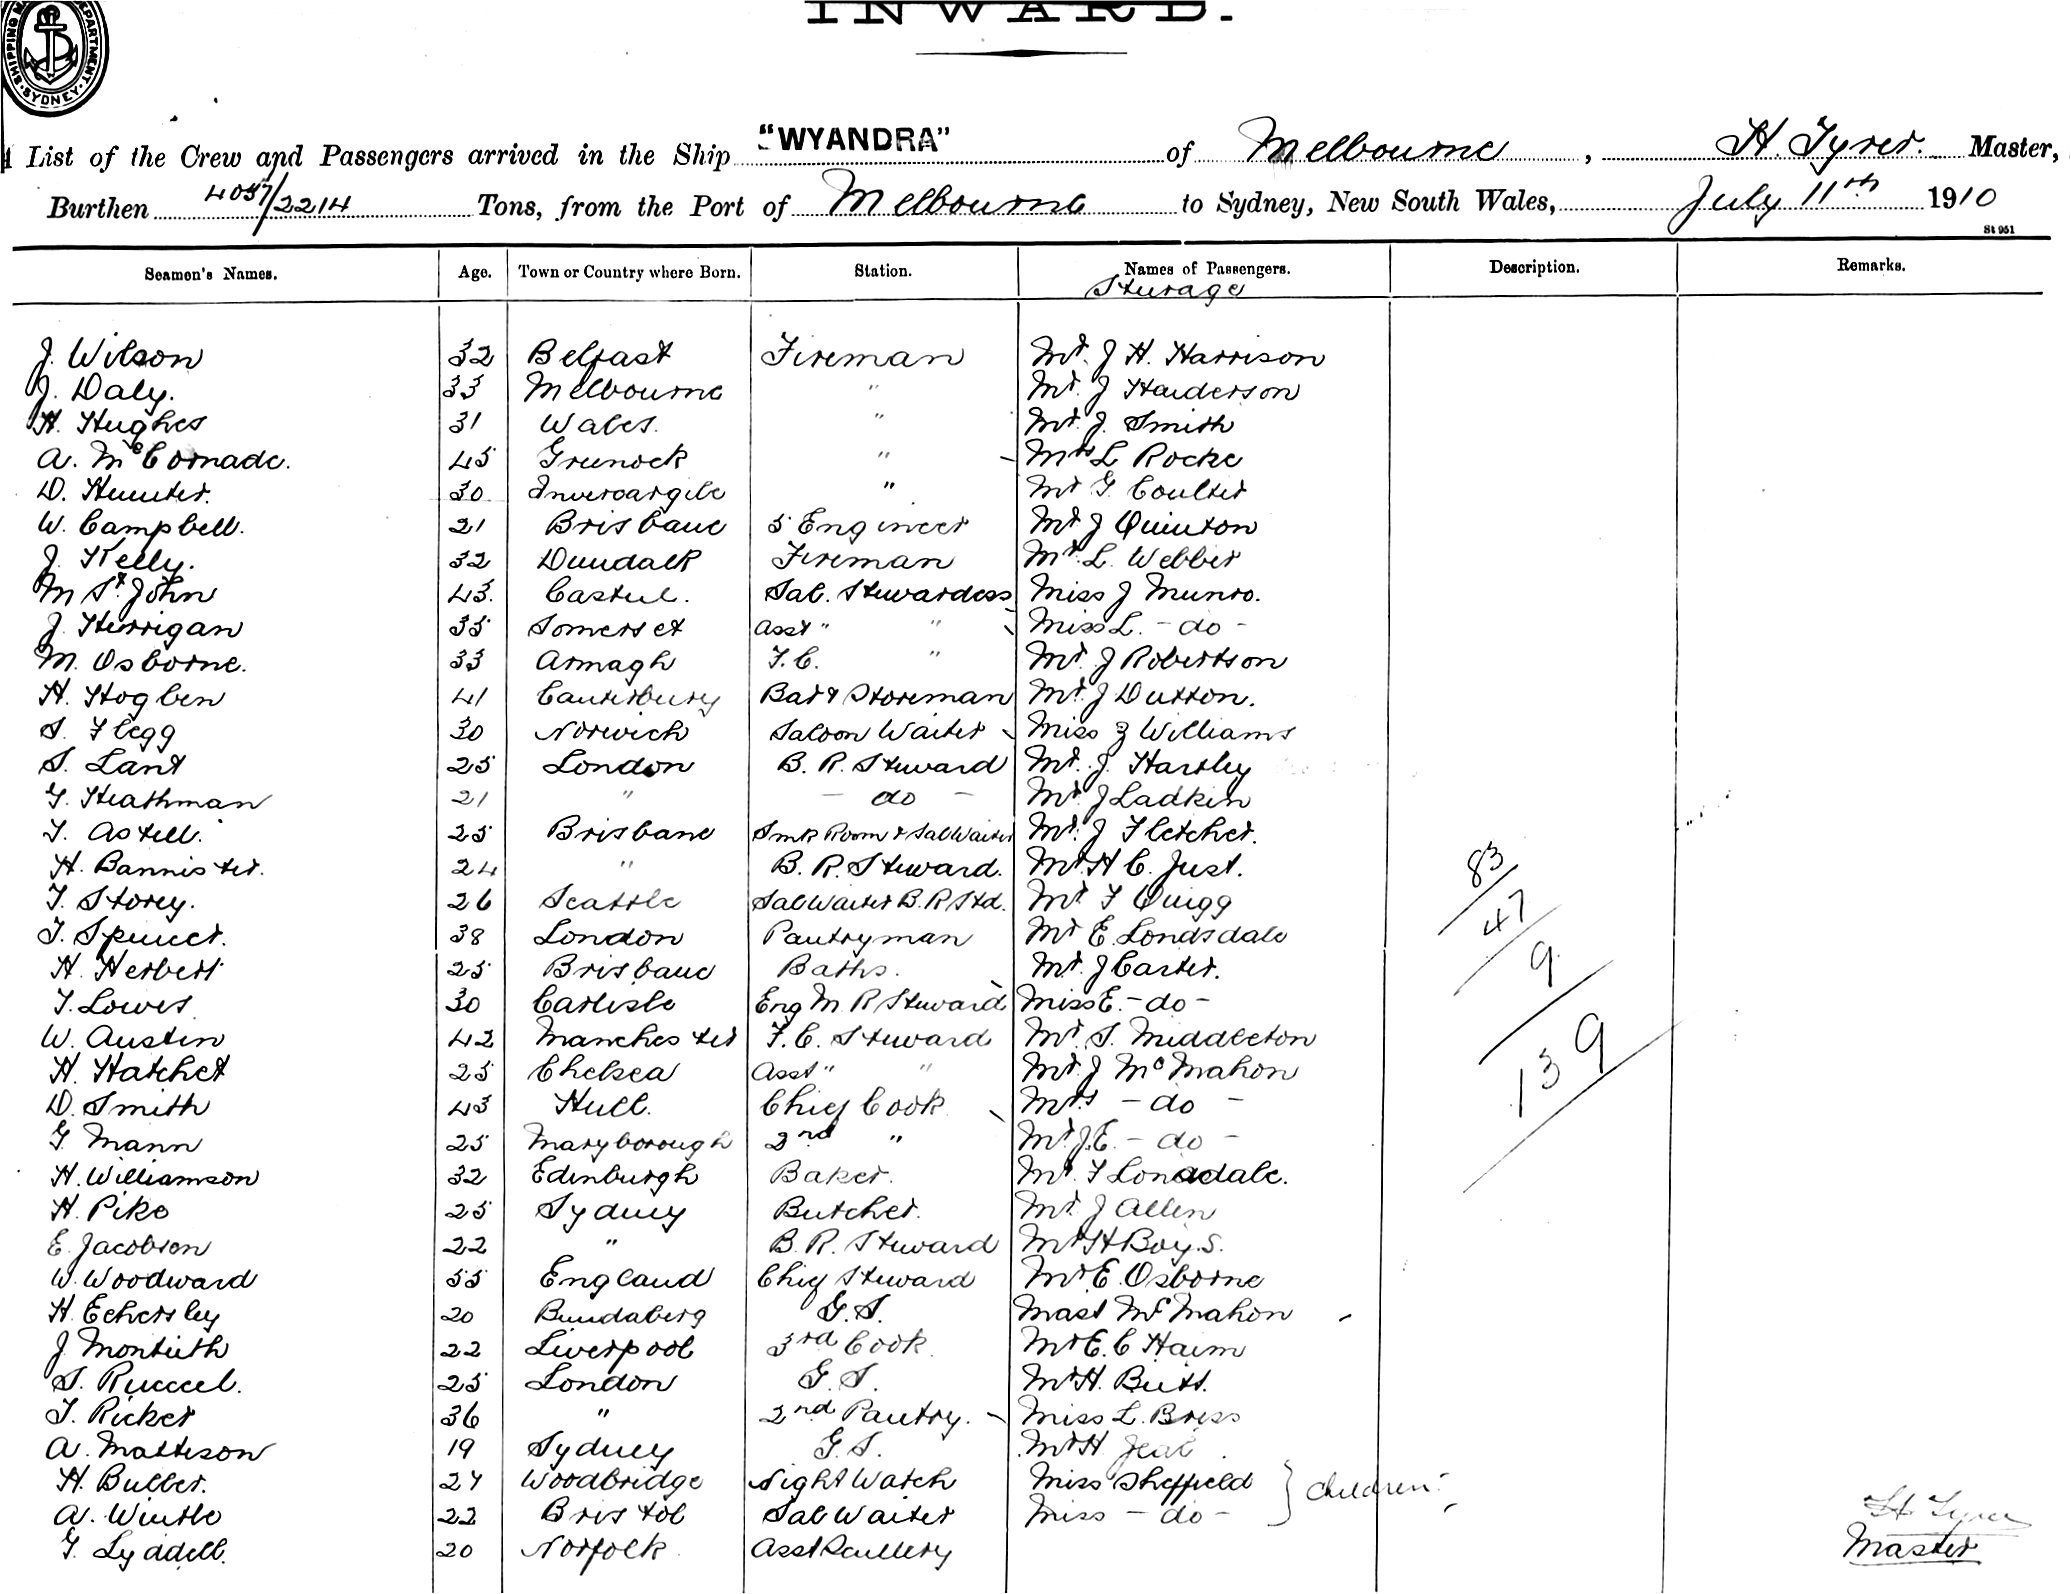 INWARD.
SHIPPING DEPARTMENT SYDNEY
List of the Crew and Passengers arrived in the Ship "WYANDRA" of Melbourne, H. Tyrer. Master,
Burthen 4057/2214 Tons, from the Port of Melbourne to Sydney, New South Wales, July 11th 1910
St 951
Seamen's Names. Age. Town or Country where Born. Station. Names of Passengers. Description. Remarks.
Sturage
J. Wilson 32 Belfast Fireman Mr. J H. Harrison
J. Daly. 33 Melbourne " Mr. J Henderson
H. Hughes 31 Wales. " Mr. J. Smith
A. McCornade. 45 Greenock " Mrs L Rocke
D. Hunter. 30 Invercargile " Mr G. Coulter
W. Campbell. 21 Brisbane 5 Engineer Mr J Quinton
J. Kelly. 32 Dundalk Fireman Mr. L. Webber
M St. John 43. Castel. Sal. Stewardess Miss J Munro.
J. Herrigan 35 Somerset Asst " " Miss L. - do -
M. Osborne. 33 Armagh T.C. " Mr. J Robertson
H. Hogben 41 Canterbury Bar & Storeman Mr. J Dutton.
S. Flegg 30 Norwich Saloon Waiter Miss Z Williams
S. Lant 25 London B. R. Steward Mr. J. Hartley
G. Heathman 21 " - do - Mr. J Ladkin
T. Astell. 25 Brisbane Smk Room & Sal Waiter Mr. J Fletcher.
H. Bannister. 24 " B. R. Steward. Mr. H C. Just.
T. Storey. 26 Seattle Sal Waiter B. R Std. Mr F Quigg
T. Spencer. 38 London Pantryman Mr E. Londsdale
H. Herbert 25 Brisbane Baths. Mr. J Carter.
T. Lowes 30 Carlisle Eng M. R Steward Miss E. - do -
W. Austin 42 Manchester F. C. Steward Mr. S. Middleton
H. Hatchet 25 Chelsea Asst " " Mr. J McMahon
D. Smith 43 Hull. Chief Cook Mrs - do -
G. Mann 25 Maryborough 2nd " Mr. J.E. - do -
H. Williamson 32 Edinburgh Baker. Mr. F Lonsdale.
H. Pike 25 Sydney Butcher. Mr. J Allen
E. Jacobsen 22 " B. R. Steward Mr H Boys.
W. Woodward 55 England Chief Steward Mr E. Osborne
H. Echersley 20 Bundaberg G. S. Mast McMahon
J Montieth 22 Liverpool 3rd Cook Mr E. C Haim
S. Ruccel. 25 London G. S. Mr H. Butt.
T. Ricket 36 " 2nd Pantry. Miss L. Briss
A. Matteson 19 Sydney G. S. Mr H Jeal
H. Buller. 27 Woodbridge Night Watch Miss Sheffield
A. Wintle 22 Bristol Sal Waiter Miss - do -
children
G. Lyddell. 20 Norfolk Asst Scullery
83
47
9
139
H. Tyrer
Master